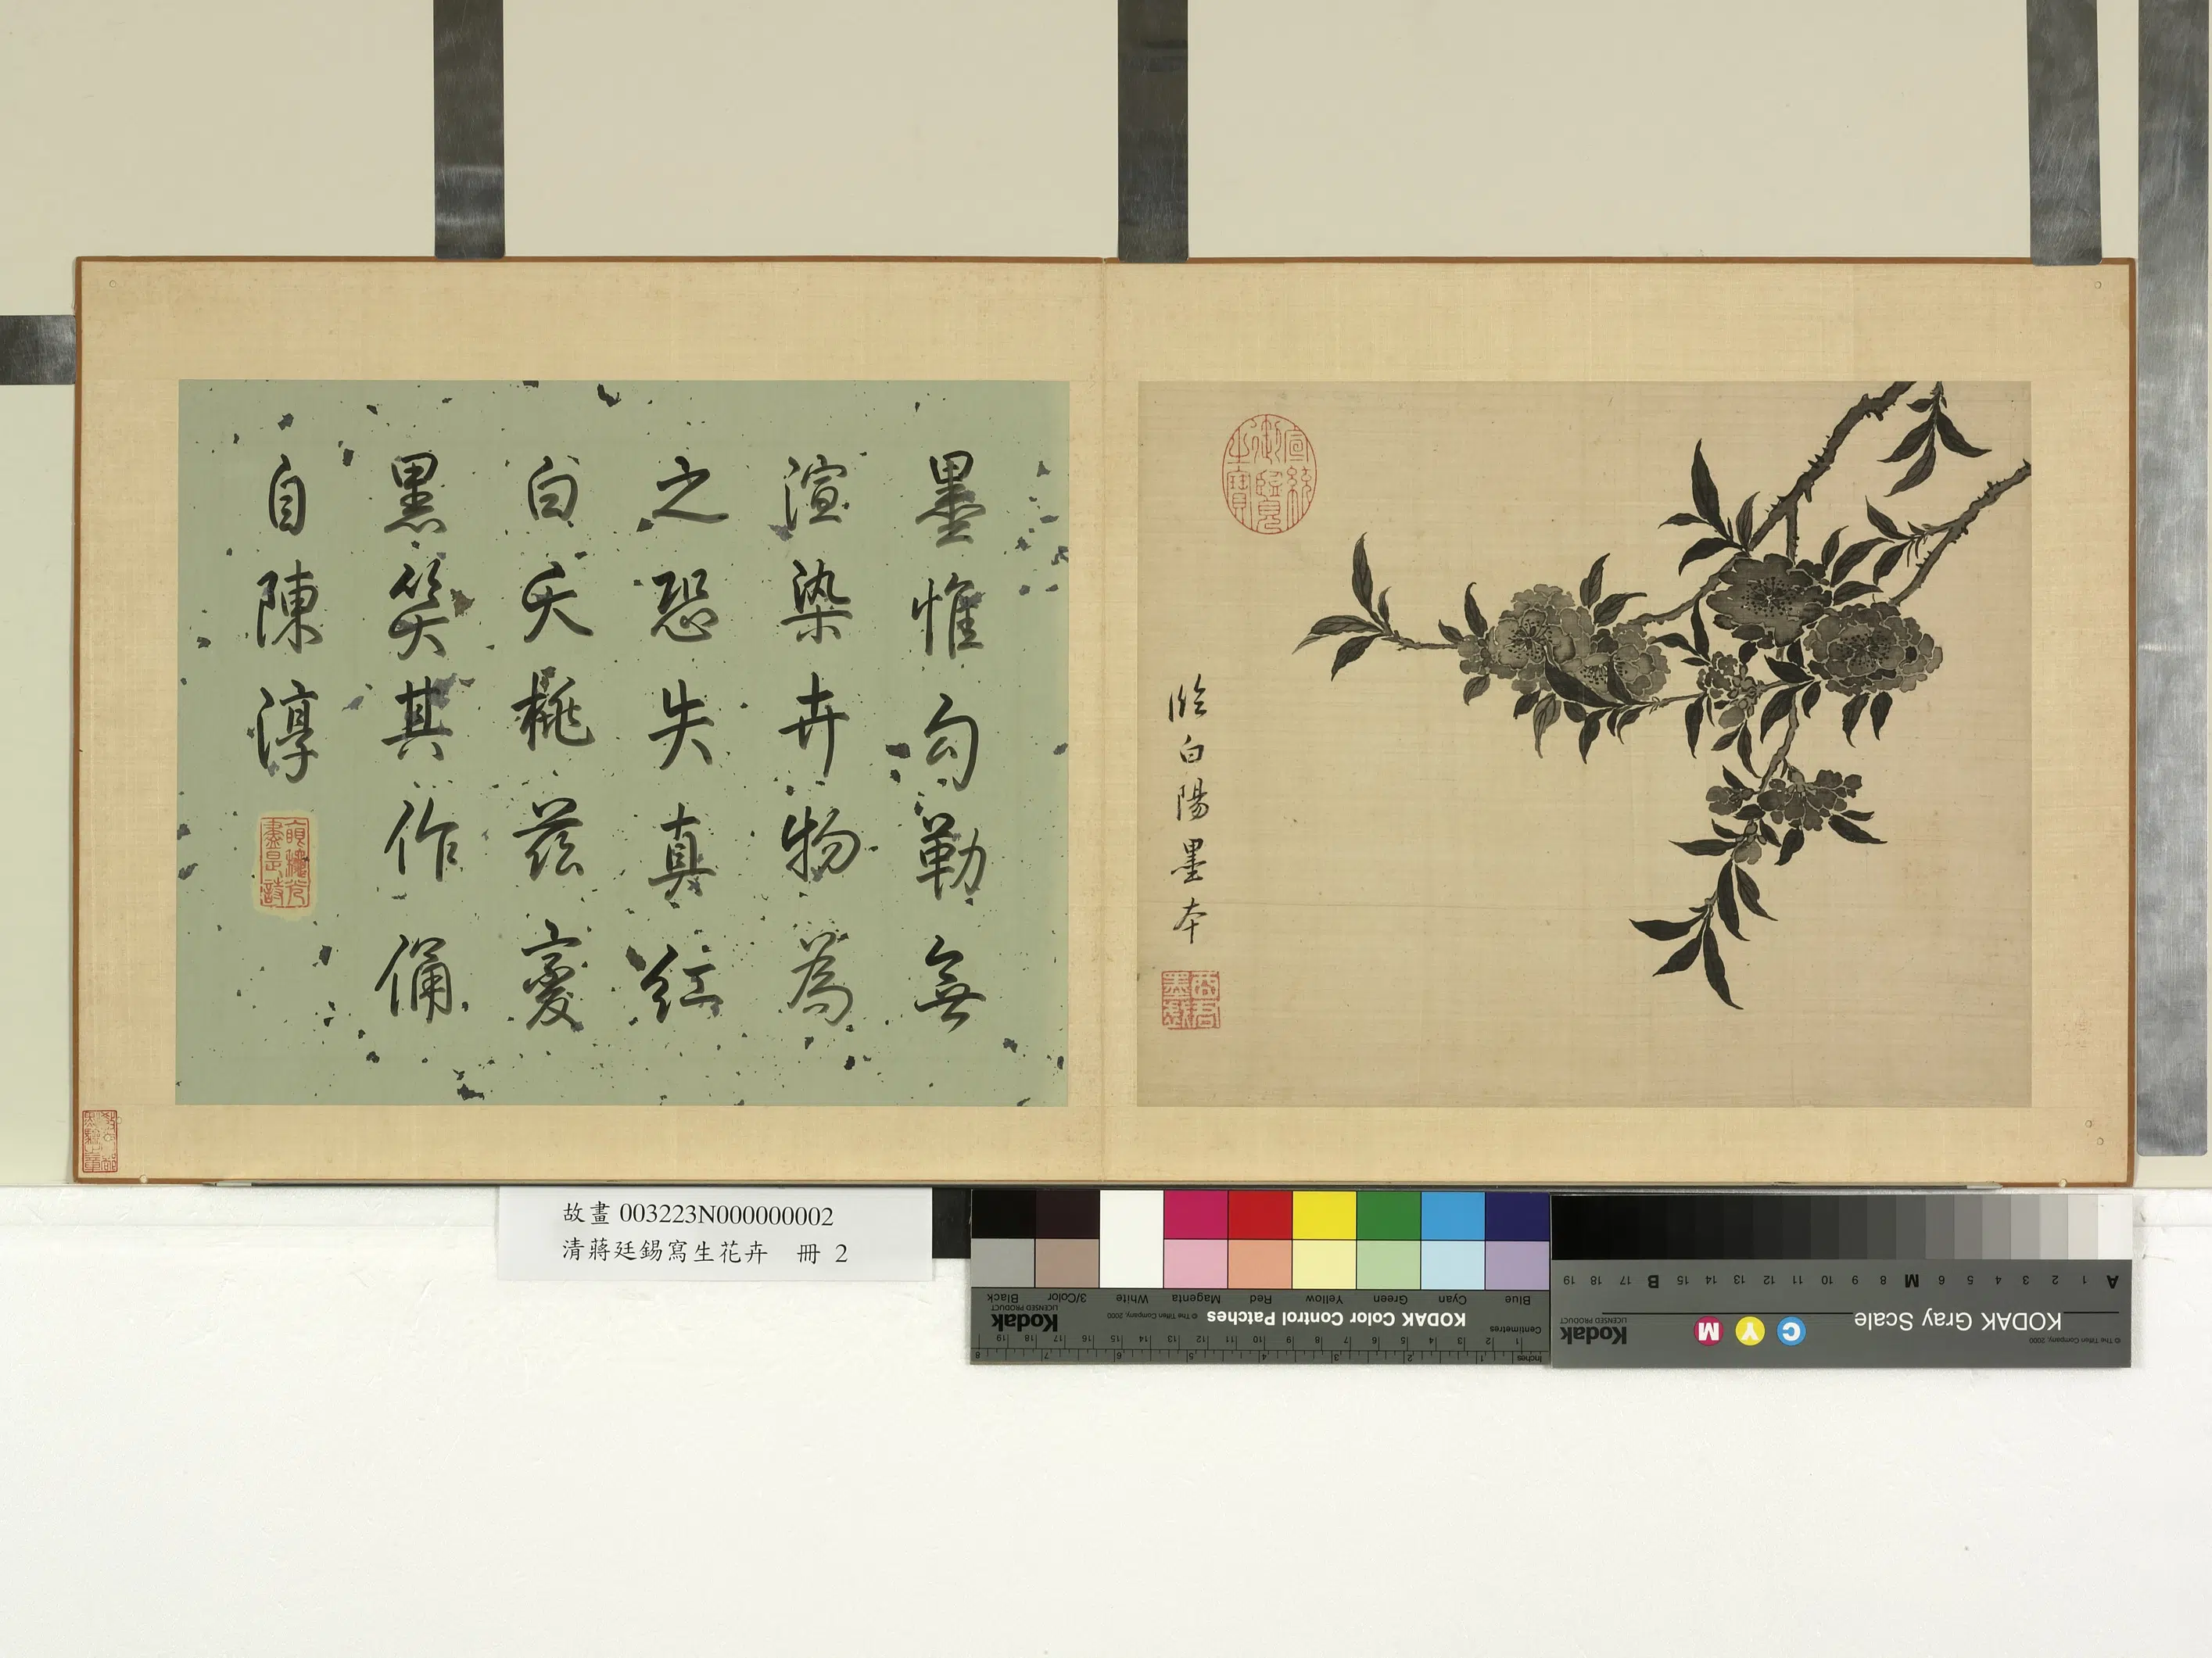 宣統御覽之寶
臨白陽墨本
酉君墨戲
墨惟勾勒無
渲染卉物為
之恐失真紅
白夭桃茲變
黑笑其作俑
自陳淳
故畫 003223N000000002
清蔣廷錫寫生花卉 冊 2
Blue Cyan Green Yellow Red Magenta White 3/Color Black
KODAK Color Control Patches © The Tiffen Company, 2000 Kodak LICENSED PRODUCT
Centimetres 1 2 3 4 5 6 7 8 9 10 11 12 13 14 15 16 17 18 19
Inches 1 2 3 4 5 6 7 8
A 1 2 3 4 5 6 M 8 9 10 11 12 13 14 15 B 17 18 19
KODAK Gray Scale C Y M Kodak LICENSED PRODUCT
© The Tiffen Company, 2000